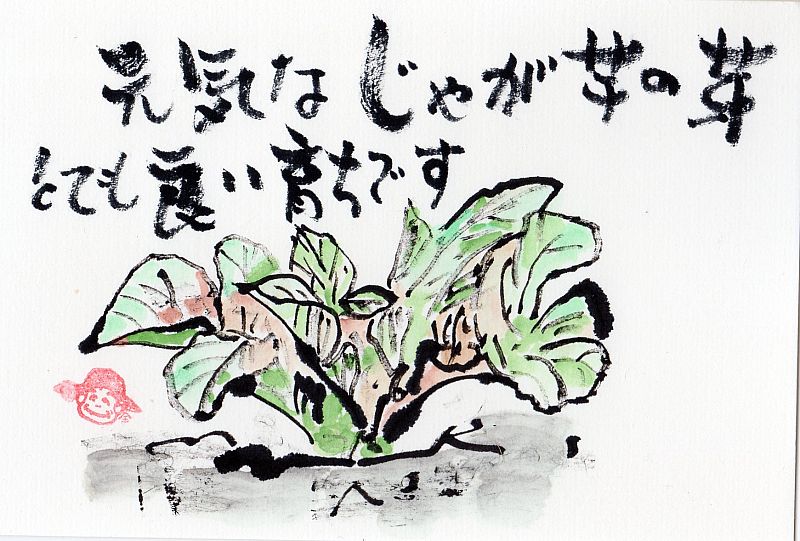 元気なじゃが芋の芽
とても良い育ちです